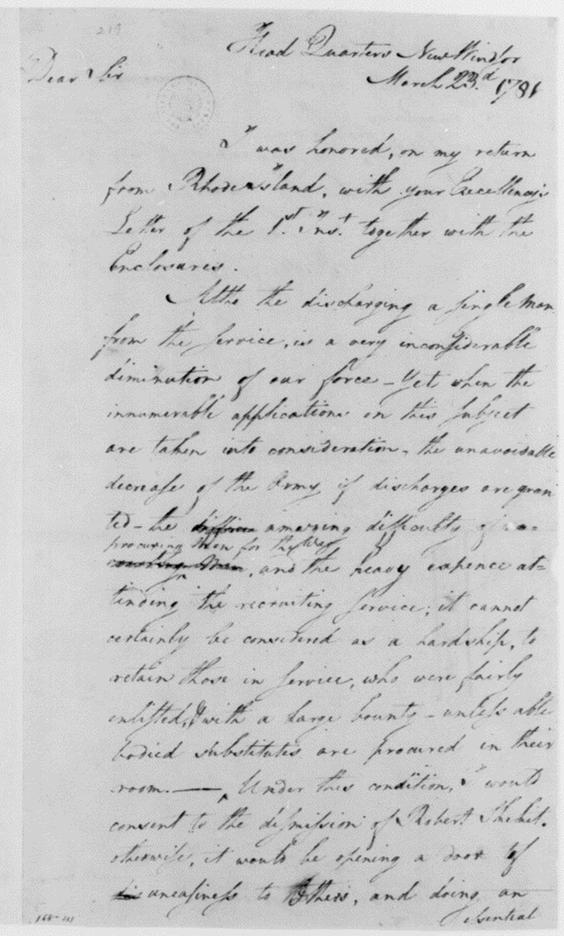 219
Head Quarters New Windsor
March 23.d 1781
Dear Sir
I was honored, on my return
from Rhode Island, with your Excellency's
Letter of the 1.st Inst. together with the
Enclosures.
Altho the discharging a single Man
from the Service, is a very inconsiderable
diminution of our force - Yet when the
innumerable applications on this subject
are taken into consideration - the unavoidable
decrease of the Army if discharges are gran
ted - the amazing difficulty of
procuring Men for the War
, and the heavy expence at=
tending the recruiting service; it cannot
certainly be considered as a hardship, to
retain those in service, who were fairly
enlisted, & with a large bounty - unless able
bodied substitutes are procured in their
room. — Under this condition, I would
consent to the dismission of Robert
otherwise, it would be opening a door of
uneasiness to others, and doing an
essential